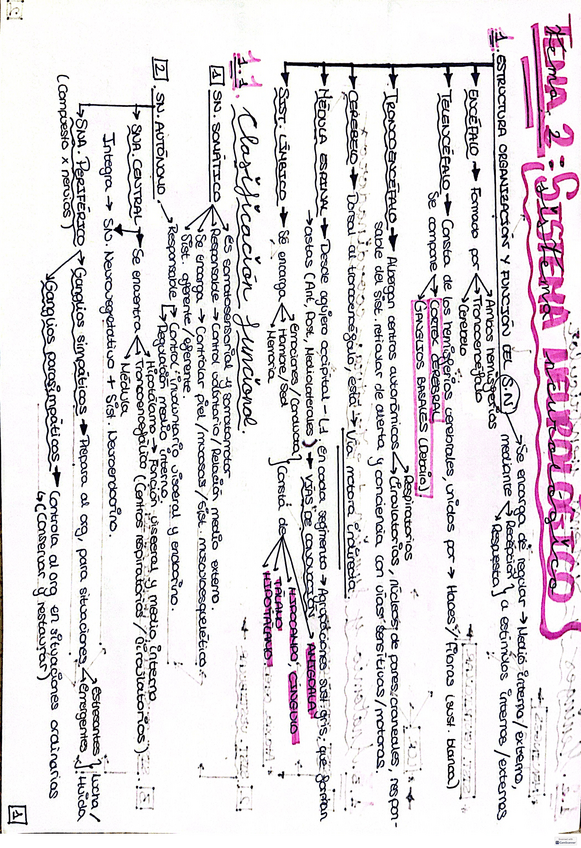 TEMA 2: SISTEMA NEUROLÓGICO
1. ESTRUCTURA ORGANIZACIÓN Y FUNCIÓN DEL S.N
Se encarga de regular → Medio interno/externo,
mediante → Recepción / Respuesta } a estímulos internos/externos
→ ENCÉFALO → Formado por → Ambos hemisferios
→ Troncoencéfalo
→ Cerebelo
→ TELENCÉFALO → Consta de los hemisferios cerebrales, unidos por → Haces/Fibras (sust. blanca)
Se compone → CORTEX CEREBRAL
GANGLIOS BASALES (Debajo)
→ TRONCOENCÉFALO → Albergan centros autonómicos → Respiratorios
→ Circulatorios, núcleos de pares craneales, respon-
sable del sist. reticular de alerta y conciencia con vías sensitivas/motoras.
→ CEREBELO → Dorsal al troncoencéfalo, está → Vía motora indirecta
→ MÉDULA ESPINAL → Desde agujero occipital - L1 En cada segmento → Agrupaciones sust. gris, que forman
→ astas (Ant, Post, Mediolaterales) → VÍAS DE CONDUCCIÓN
→ SIST. LÍMBICO → Se encarga → Emociones/Conducta
→ Hambre/Sed
→ Memoria
} Consta de → AMÍGDALA
→ HIPOCAMPO, CÍNGULO
→ TÁLAMO
→ HIPOTÁLAMO
1.1. Clasificación Funcional.
1 SN. SOMÁTICO → Es somatosensorial y somatomotor
→ Responsable → Control voluntario/Relación medio externo.
→ Se encarga → Controlar piel/mucosas/sist. musculoesquelético
→ Sist. aferente/eferente.
2 SN. AUTÓNOMO → Responsable → Control involuntario visceral y endocrino.
→ Regulación medio interno,
→ SNA. CENTRAL → Se encuentra → Hipotálamo → Función visceral y medio interno
→ Troncoencefálico (Centros respiratorios/circulatorios)
→ Médula
Integra → SN. Neurovegetativo + Sist. Neuroendocrino.
→ SNA. PERIFÉRICO → Ganglios simpáticos → Prepara al org. para situaciones → estresantes
→ emergentes } Lucha/
Huida
(Compuesto x nervios)
→ Ganglios parasimpáticos → Controla al org en situaciones ordinarias
→ (Conservar y restaurar)
1